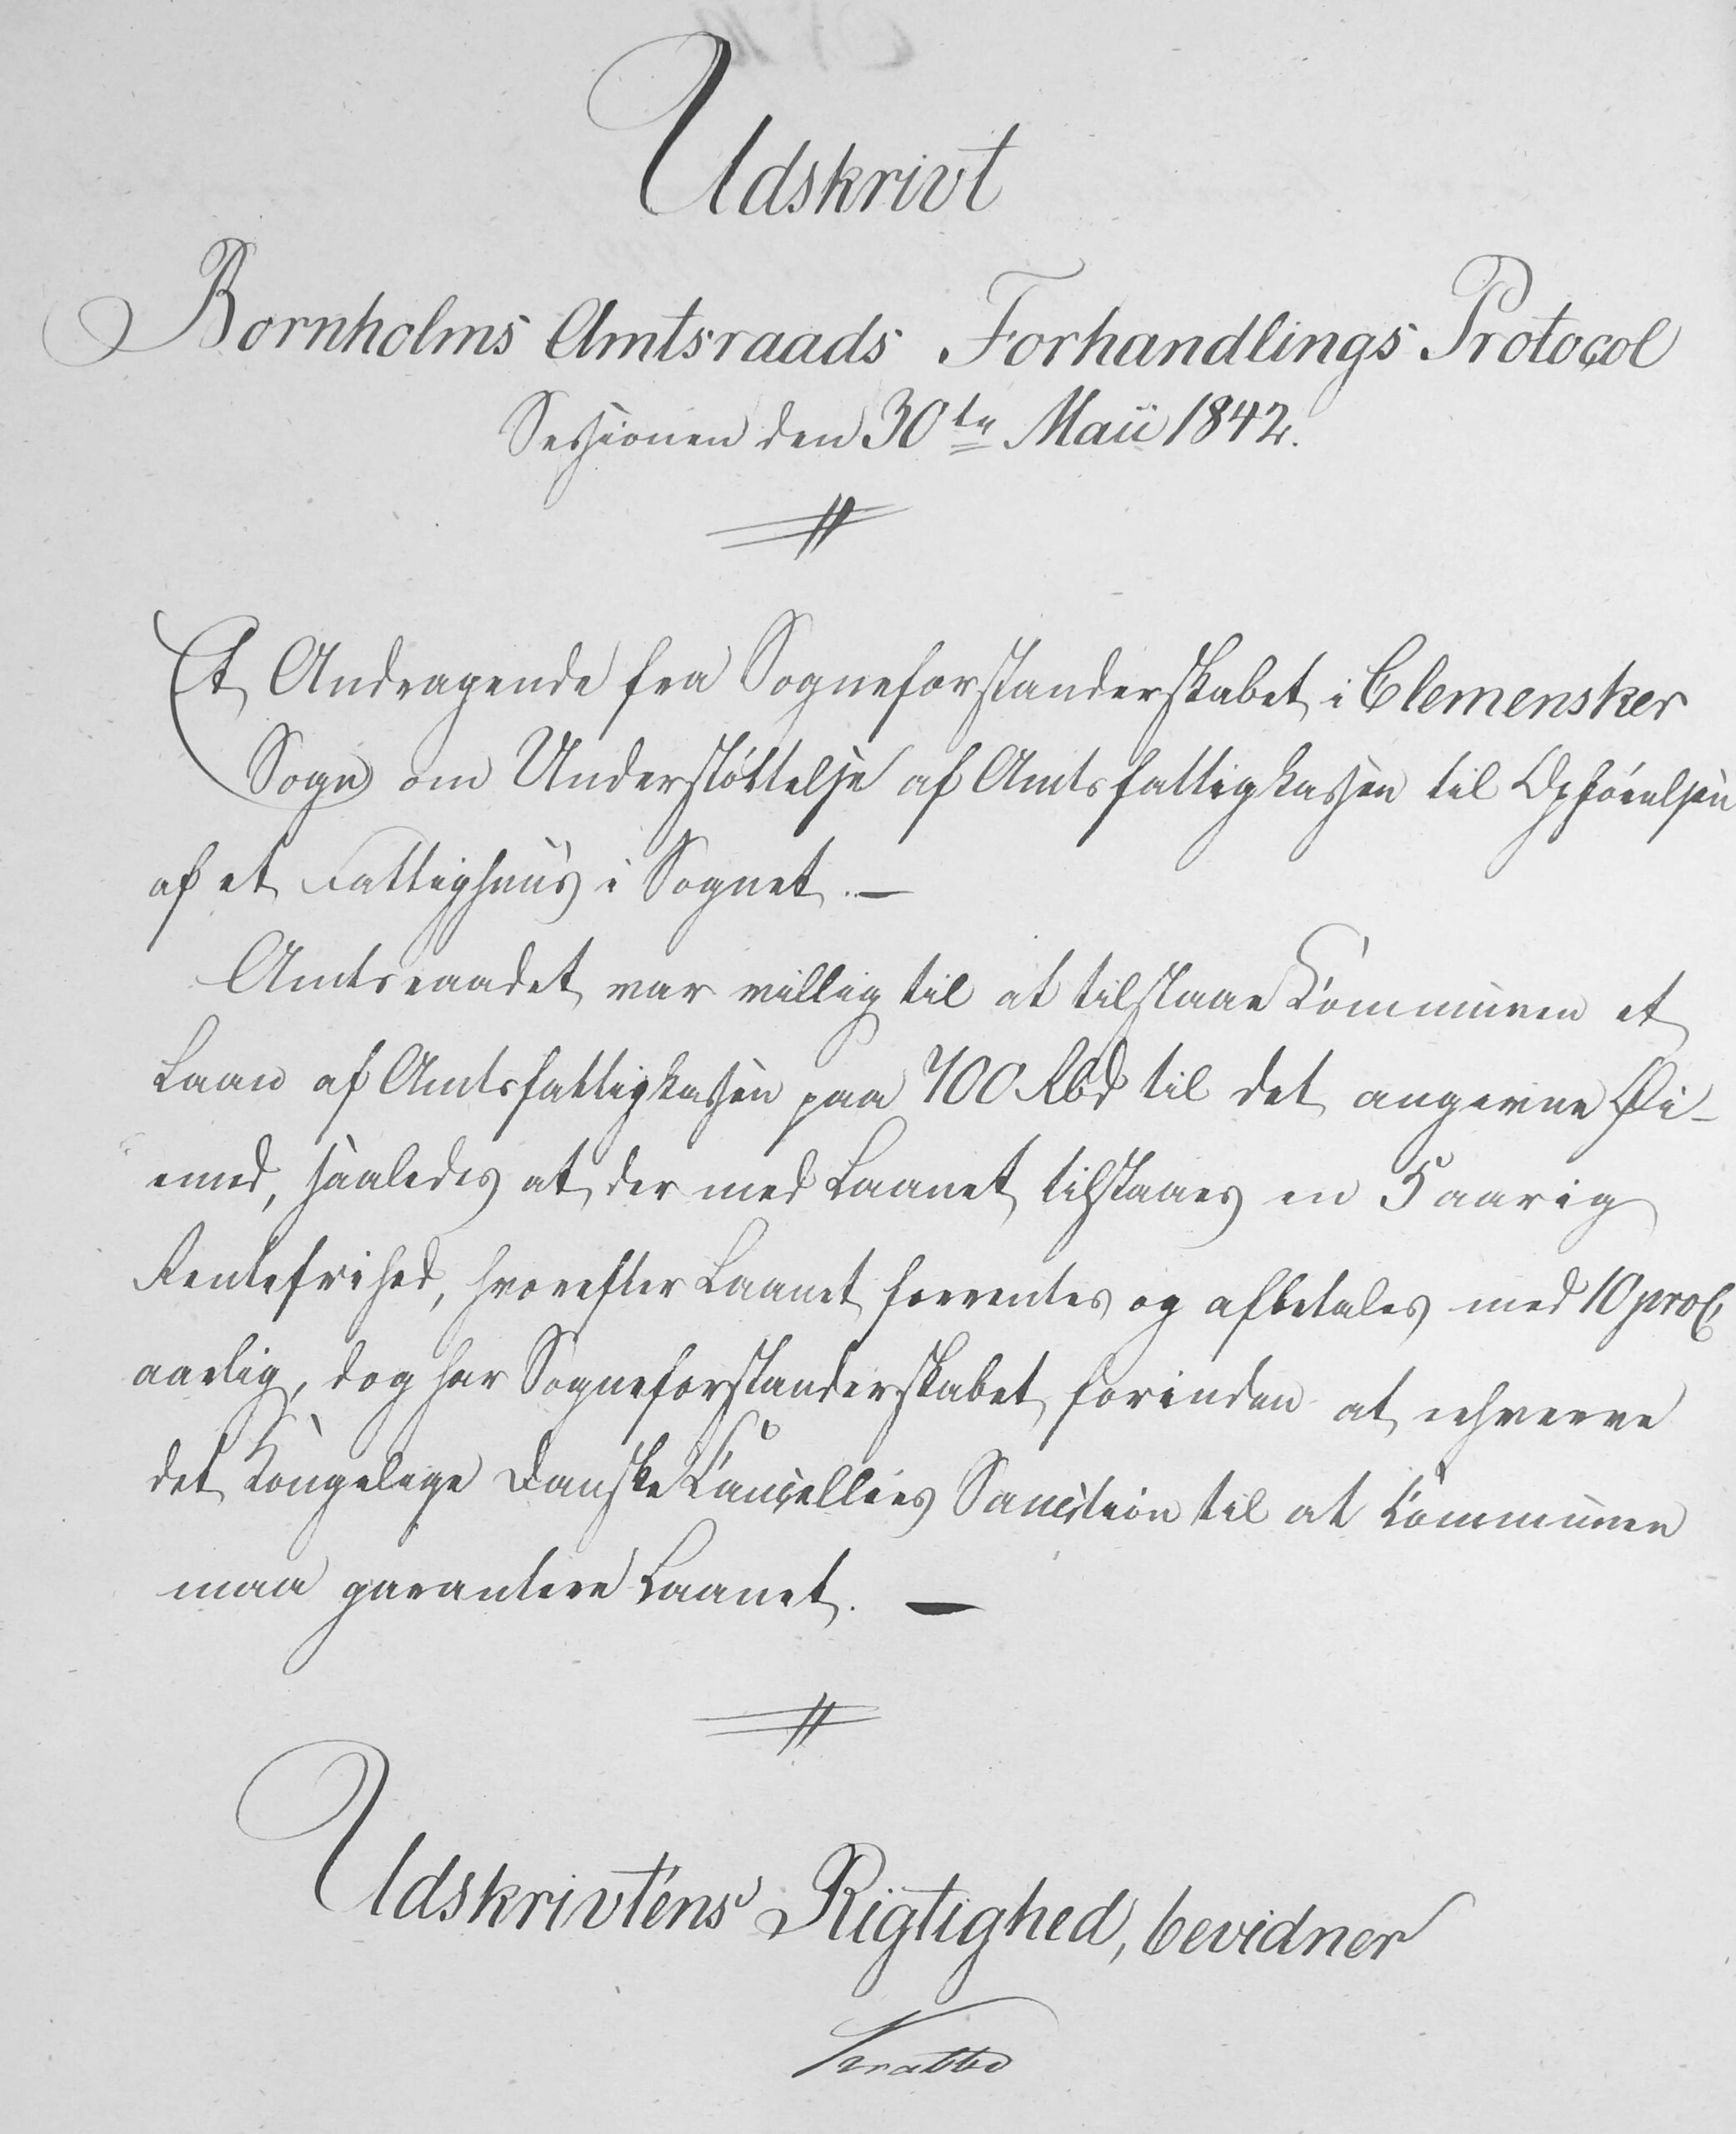 Udskrivt
Bornholms Amtsraads Forhandlings Protocol
Sessionen den 30te Maii 1842.
Et Andragende fra Sogneforstanderskabet i Clemensker
Sogn om Understøttelse af Amtsfattigkassen til Opførelsen
af et Fattighuus i Sognet. —
Amtsraadet var villig til at tilstaae Communen et
Laan af Amtsfattigkassen paa 400 Rbd til det angivne Øi-
emed, saaledes at der med Laanet tilstaaes en 5 aarig
Rentefrihed, hvorefter Laanet forrentes og afbetales med 10 proC.
aarlig, dog har Sogneforstanderskabet forinden at erhverve
det Kongelige Danske Cancellies Sanction til at Communen
maa garantere Laanet. —
Udskrivtens Rigtighed, bevidner
Krabbe